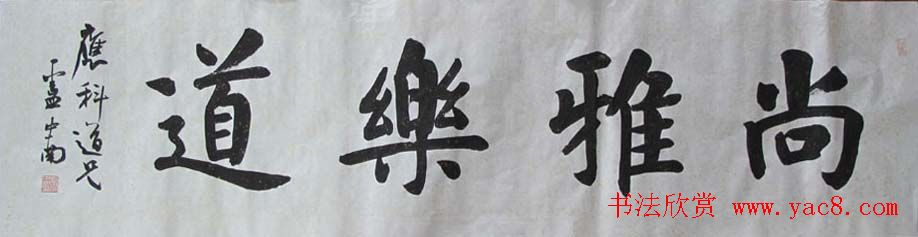 尚雅樂道
應科道兄
盧中南
书法欣赏 www.yac8.com